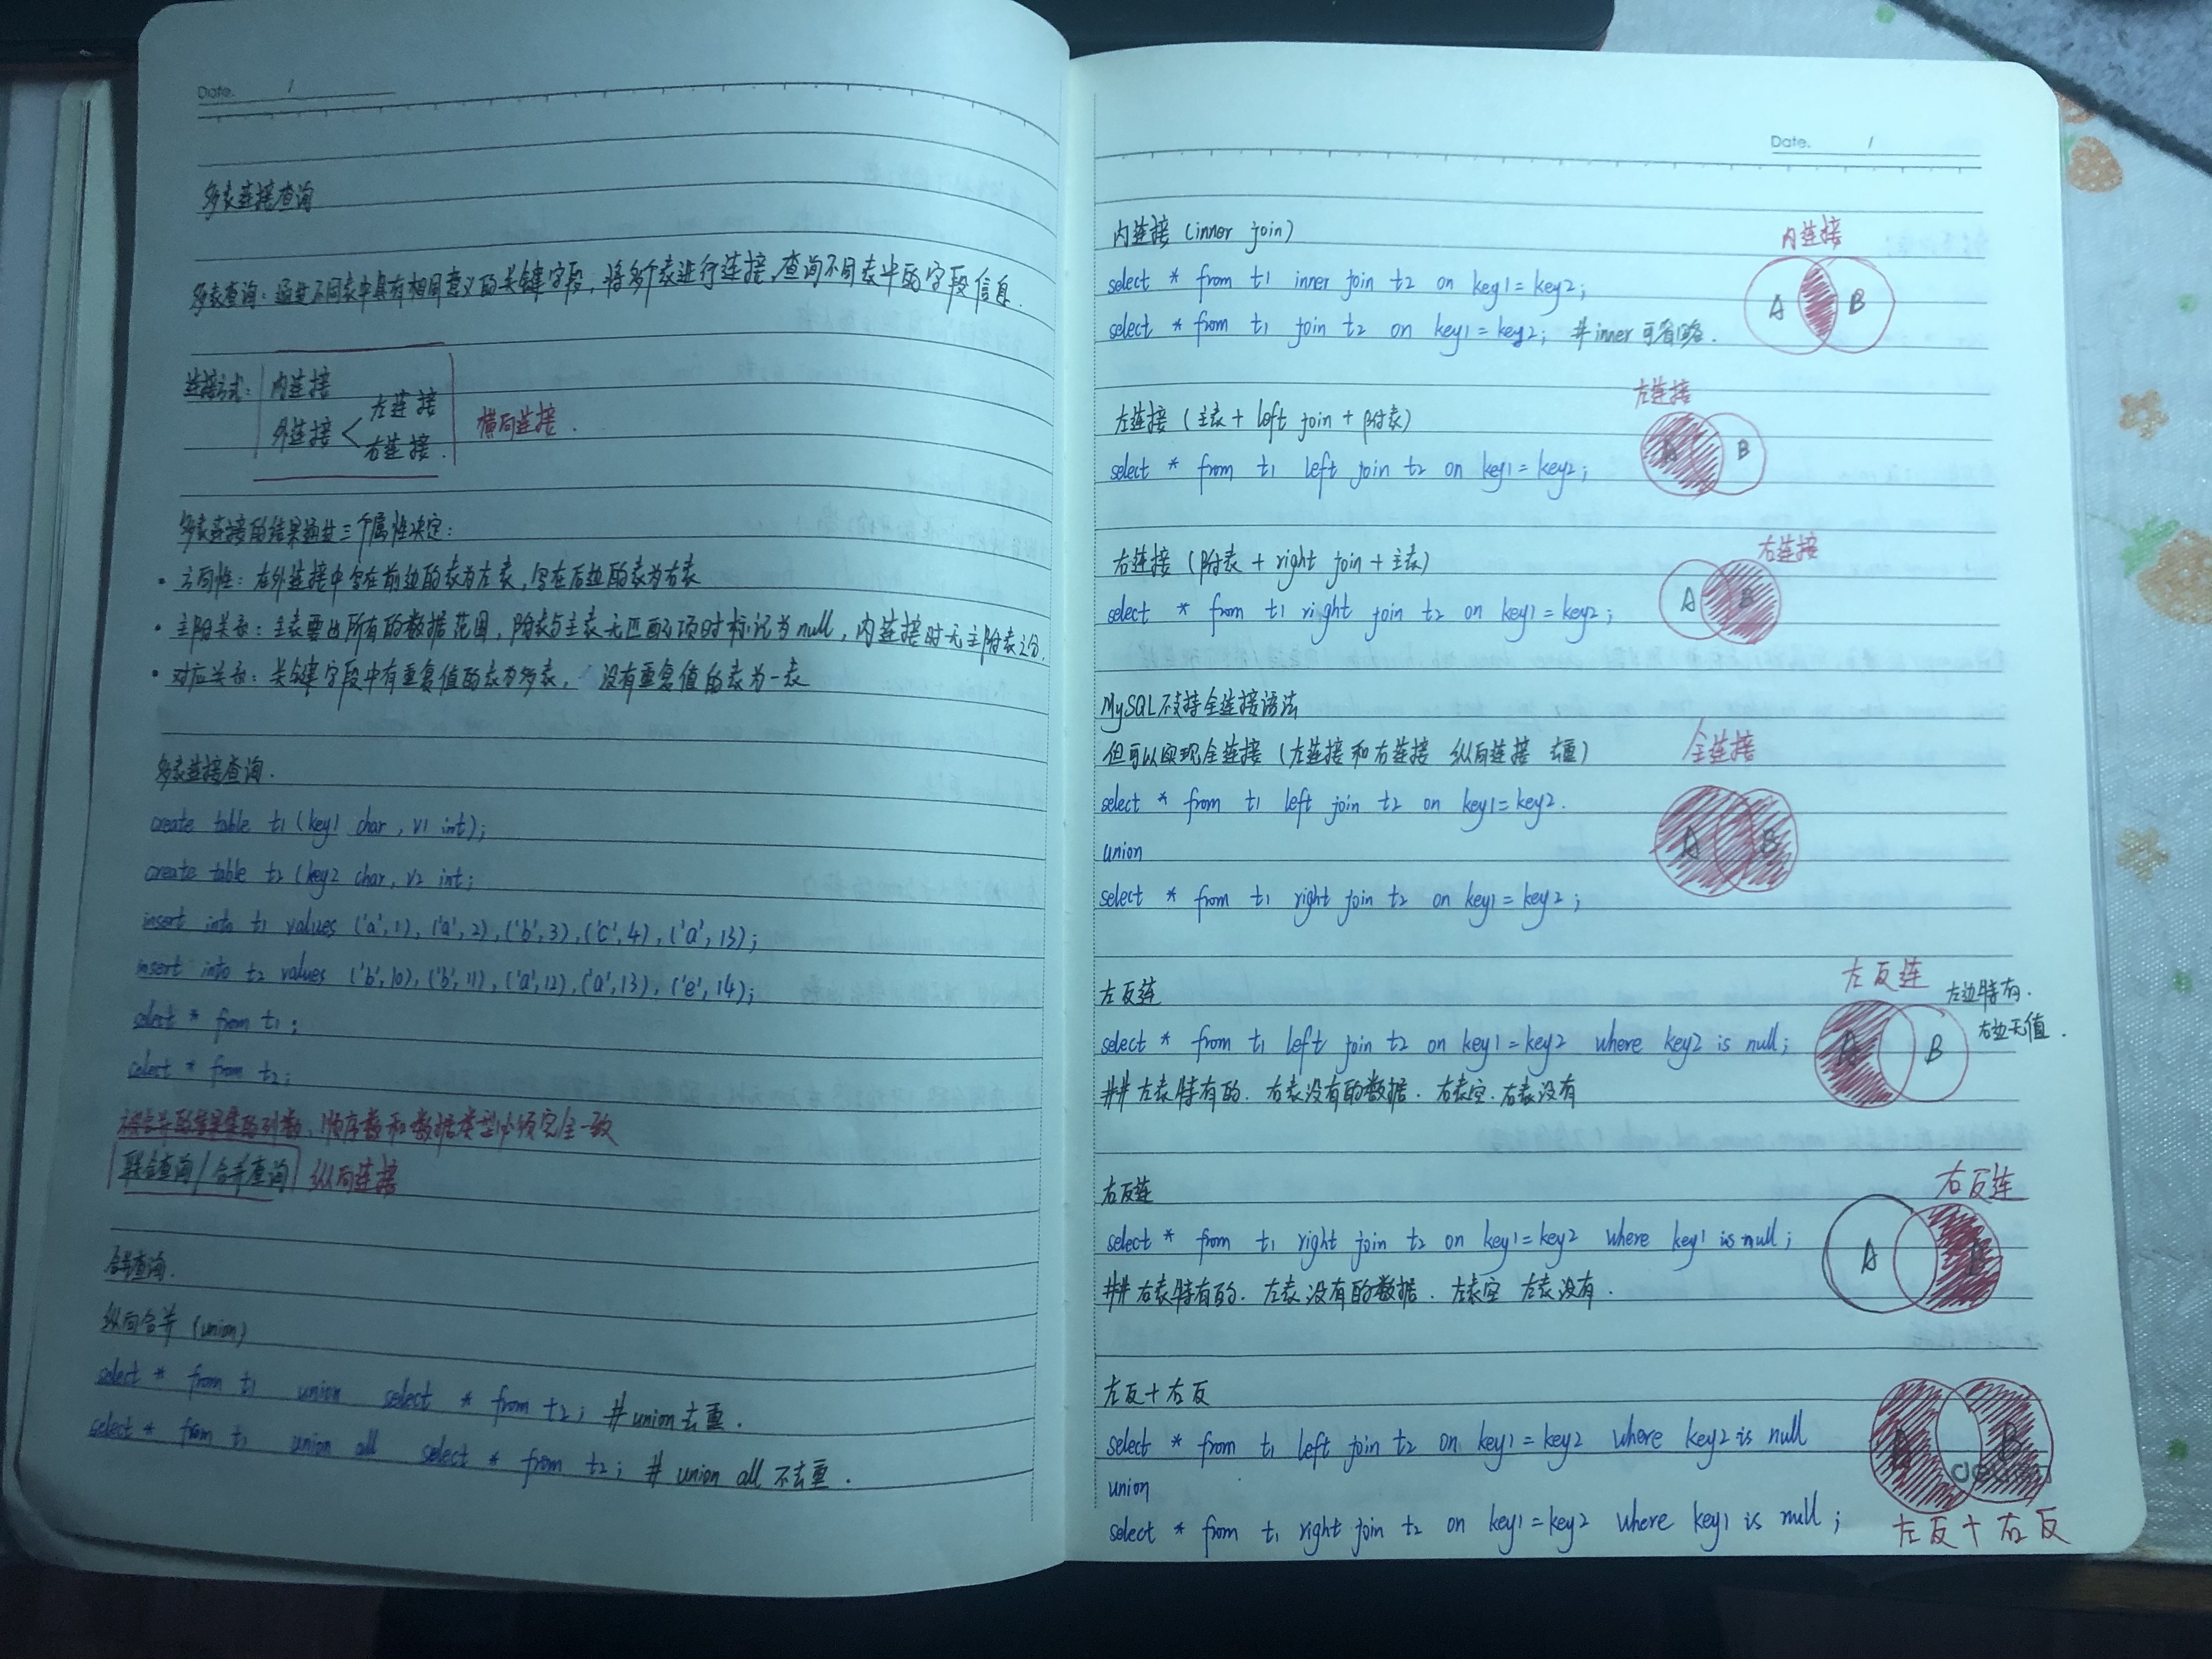 Date. /
多表连接查询
多表查询：通过不同表中具有相同意义的关键字段，将多个表进行连接，查询不同表中的字段信息.
连接方式：
内连接
外连接 < 左连接
右连接.
横向连接.
多表连接的结果通过三个属性决定：
· 方向性：在外连接中写在前边的表为左表，写在后边的表为右表
· 主附关系：主表要出所有的数据范围，附表与主表无匹配项时标记为null，内连接时无主附表之分.
· 对应关系：关键字段中有重复值的表为多表，没有重复值的表为一表
多表连接查询.
create table t1 (key1 char, v1 int);
create table t2 (key2 char, v2 int;
insert into t1 values ('a',1),('a',2),('b',3),('c',4),('a',13);
insert into t2 values ('b',10),('b',11),('a',12),('a',13),('e',14);
select * from t1;
select * from t2;
被合并的结果集的列数、顺序数和数据类型必须完全一致
联合查询/合并查询 纵向连接
合并查询.
纵向合并 (union)
select * from t1 union select * from t2; #union去重.
select * from t1 union all select * from t2; # union all 不去重.
Date. /
内连接 (inner join)
内连接
select * from t1 inner join t2 on key1=key2;
A B
select * from t1 join t2 on key1=key2; #inner可省略.
左连接
左连接 (主表+ left join + 附表)
select * from t1 left join t2 on key1=key2;
A B
右连接
右连接 (附表 + right join + 主表)
select * from t1 right join t2 on key1=key2;
A B
MySQL不支持全连接语法
但可以实现全连接 (左连接和右连接 纵向连接 去重)
全连接
select * from t1 left join t2 on key1=key2.
union
A B
select * from t1 right join t2 on key1=key2;
左反连
左反连
左边特有.
右边无值.
select * from t1 left join t2 on key1=key2 where key2 is null;
A B
## 左表特有的. 右表没有的数据. 右表空. 右表没有
右反连
右反连
select * from t1 right join t2 on key1=key2 where key1 is null;
A B
## 右表特有的. 左表没有的数据. 左表空 左表没有.
左反+右反
select * from t1 left join t2 on key1=key2 where key2 is null
A B
union
select * from t1 right join t2 on key1=key2 where key1 is null;
左反+右反